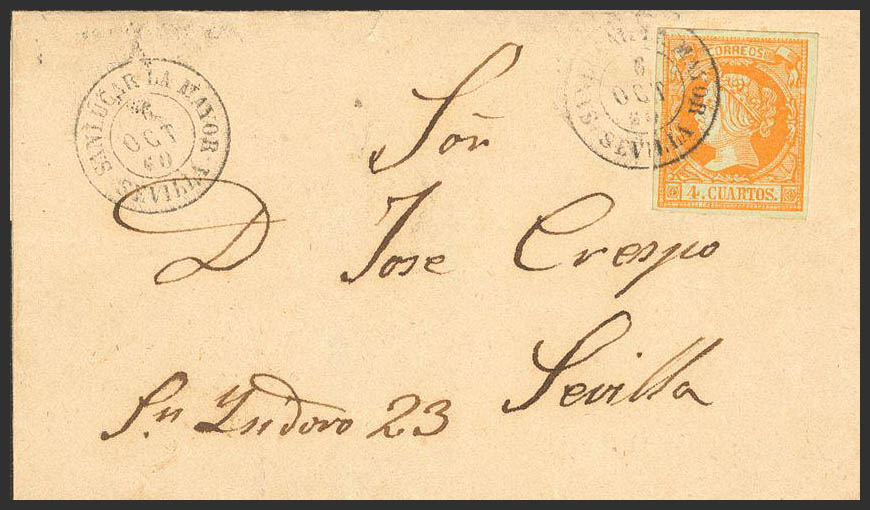 SANLUCAR LA MAYOR
6
OCT
60
SEVILLA
LA MAYOR
6
OCT
60
SEVILLA
CORREOS
4 CUARTOS.
Sõn
D Jose Crespo
Sevilla
Sn Ysidoro 23